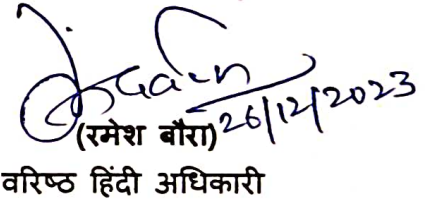 26/12/2023
(रमेश बौरा)
वरिष्ठ हिंदी अधिकारी